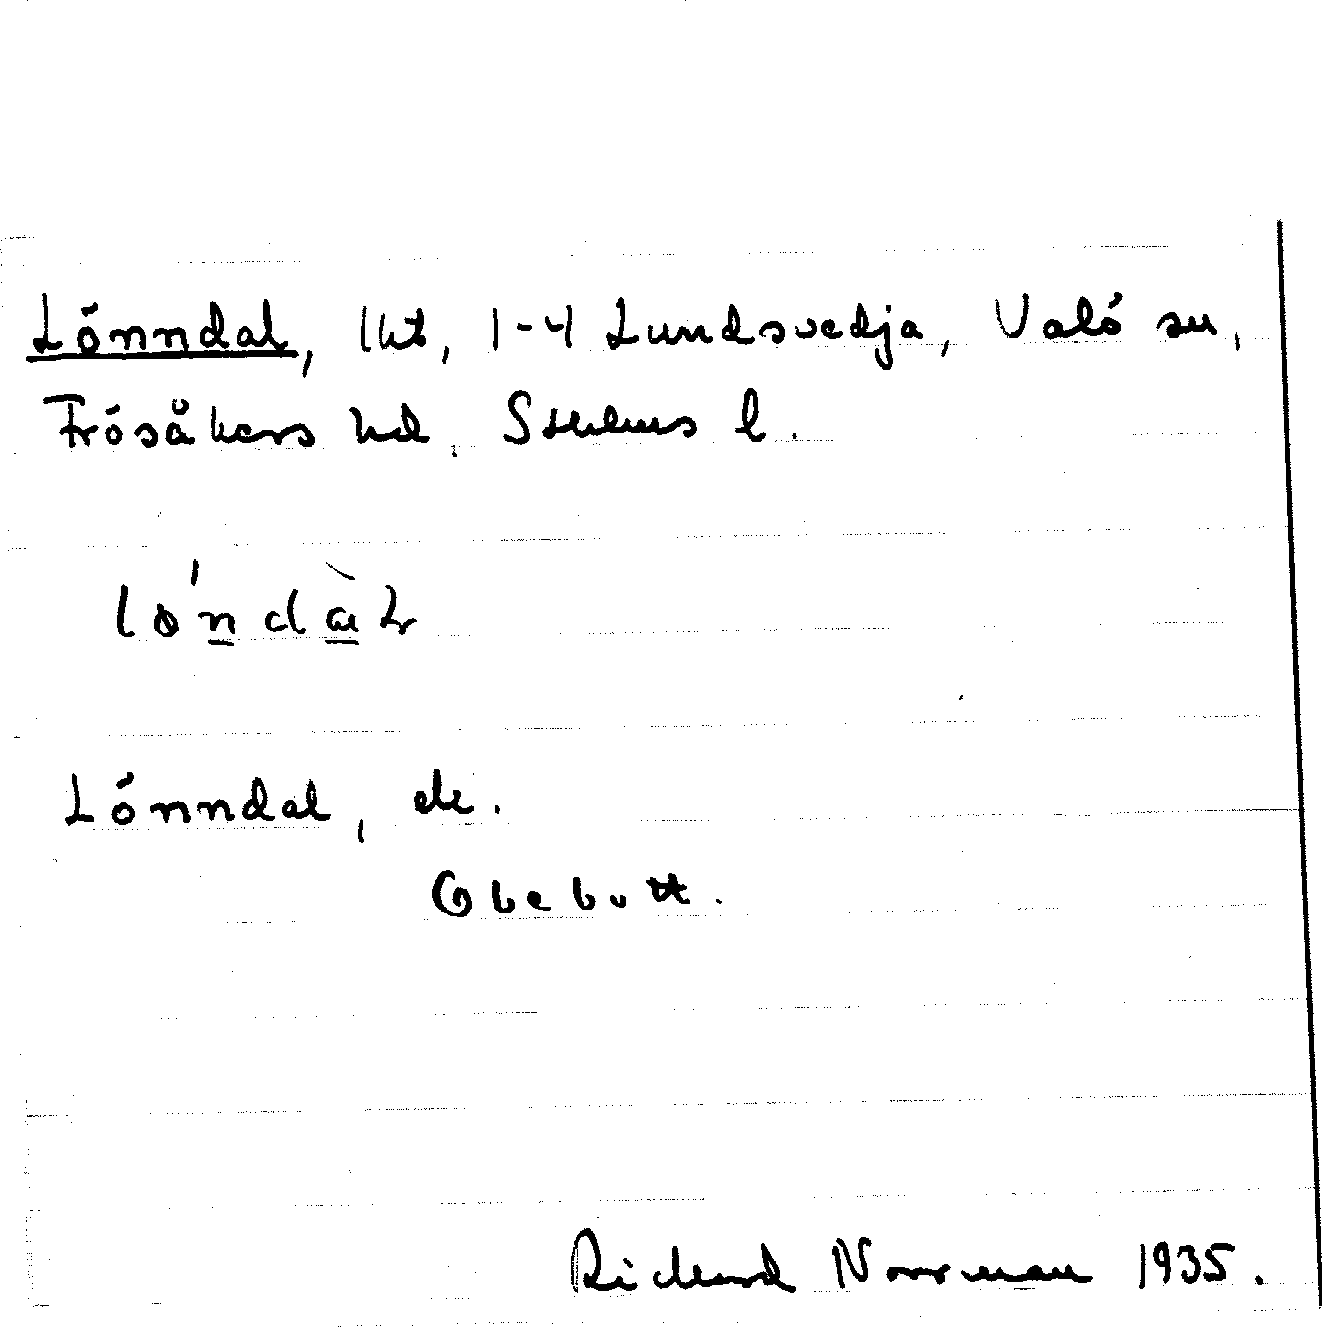 Lönndal, lht, 1-4 Lundsvedja, Valö sn,
Frösåkers hd, Sthlms l.
Lönndal, ek.
Obebott.
Rickard Norrman 1935.